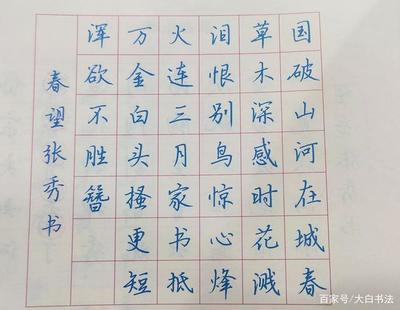 国破山河在城春
草木深感时花溅
泪恨别鸟惊心烽
火连三月家书抵
万金白头搔更短
浑欲不胜簪
春望张秀书
百家号/大白书法